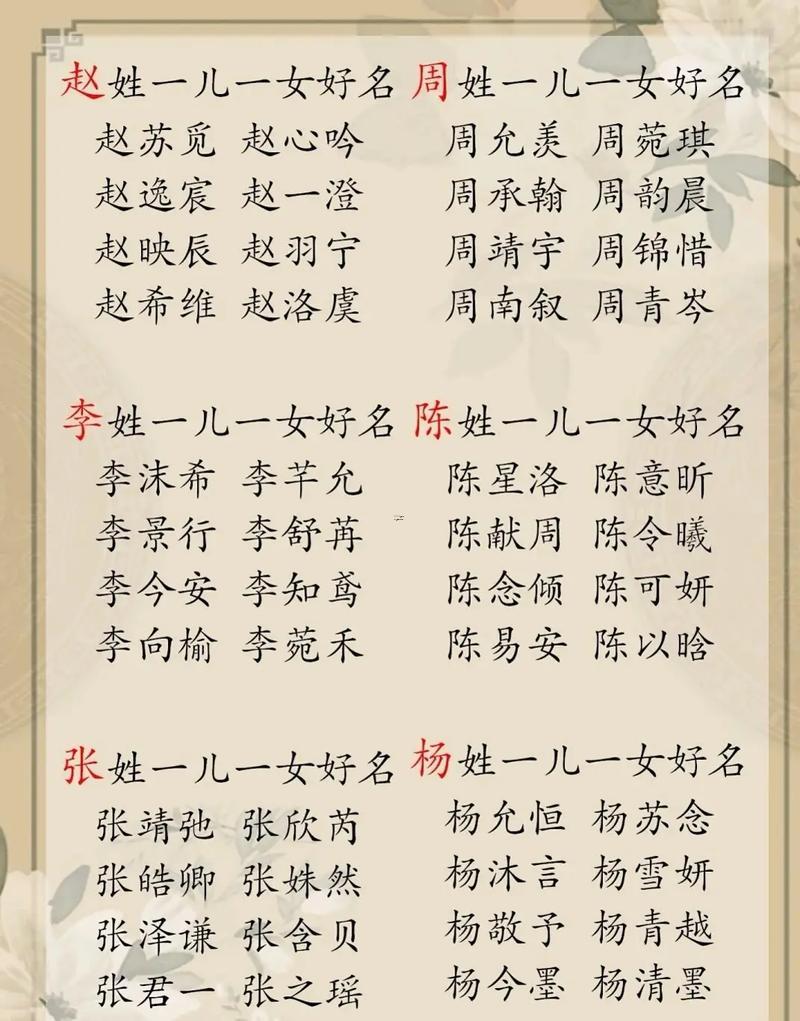 赵姓一儿一女好名
赵苏觅 赵心吟
赵逸宸 赵一澄
赵映辰 赵羽宁
赵希维 赵洛虞
周姓一儿一女好名
周允羡 周菀琪
周承翰 周韵晨
周靖宇 周锦惜
周南叙 周青岑
李姓一儿一女好名
李沫希 李芊允
李景行 李舒苒
李今安 李知鸢
李向榆 李菀禾
陈姓一儿一女好名
陈星洛 陈意昕
陈献周 陈令曦
陈念倾 陈可妍
陈易安 陈以晗
张姓一儿一女好名
张靖弛 张欣芮
张皓卿 张姝然
张泽谦 张含贝
张君一 张之瑶
杨姓一儿一女好名
杨允恒 杨苏念
杨沐言 杨雪妍
杨敬予 杨青越
杨今墨 杨清墨